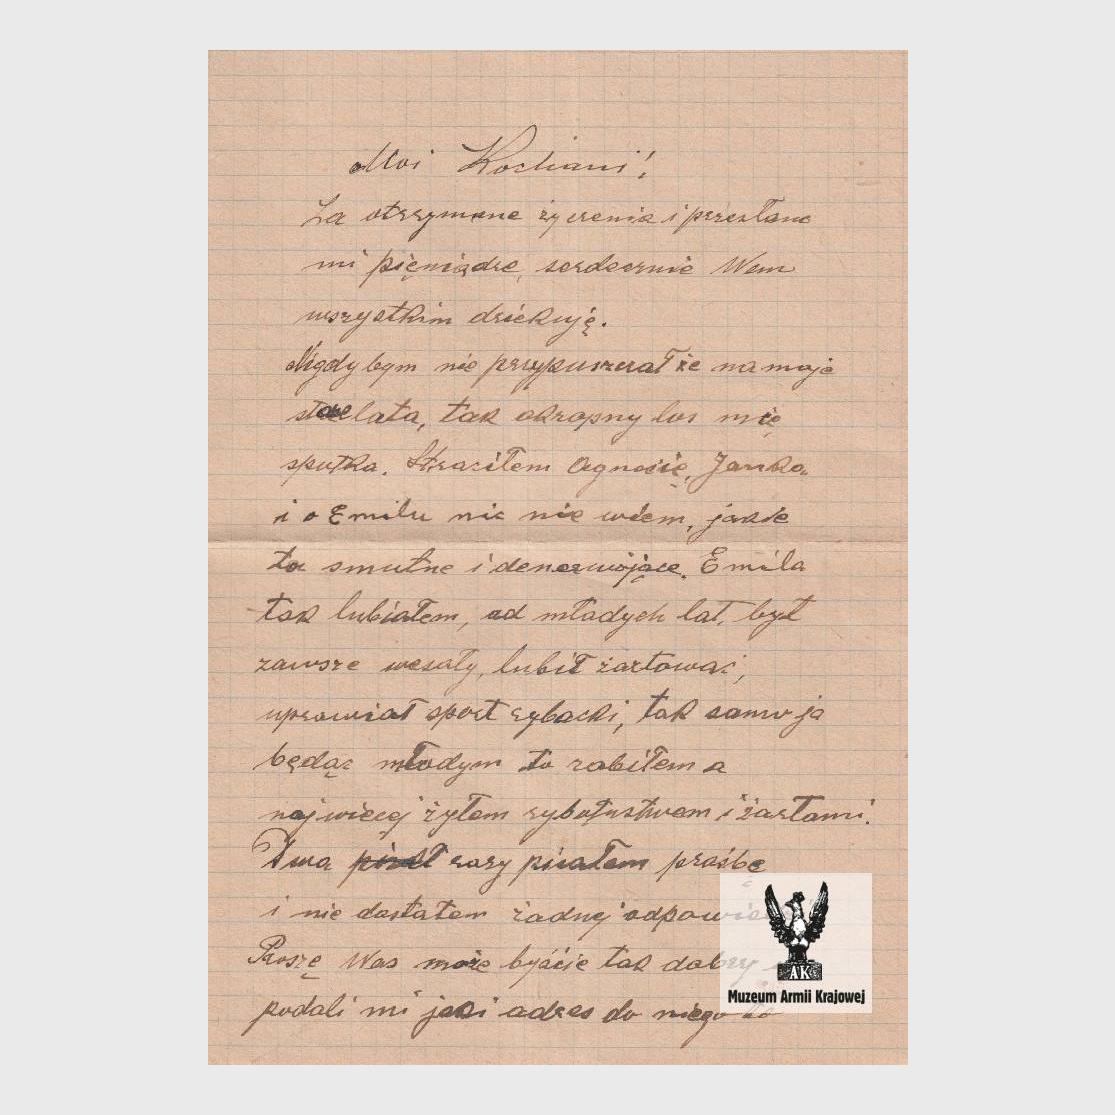 Moi Kochani!
Za otrzymane życzenia i przesłane
mi pięniądze, serdecznie Wam
wszystkim dziekuję.
Nigdy bym nie przypuszczał że na moje
stare lata, tak okropny los mię
spotka. Straciłem Agnosię, Janka
i o Emilu nic nie wiem, jakże
to smutne i denerwójące. Emila
tak lubiałem, od młodych lat, był
zawsze wesoły, lubił żartować,
uprawiał sport rybacki, tak samo ja
będąc młodym to robiłem a
najwiecej żyłem rybołustwem i żartami.
Dwa razy pisałem prośbę
i nie dostałem żadnej
Proszę Was może byście tak dobrzy
podali mi jaki adres do niego to
AK
Muzeum Armii Krajowej